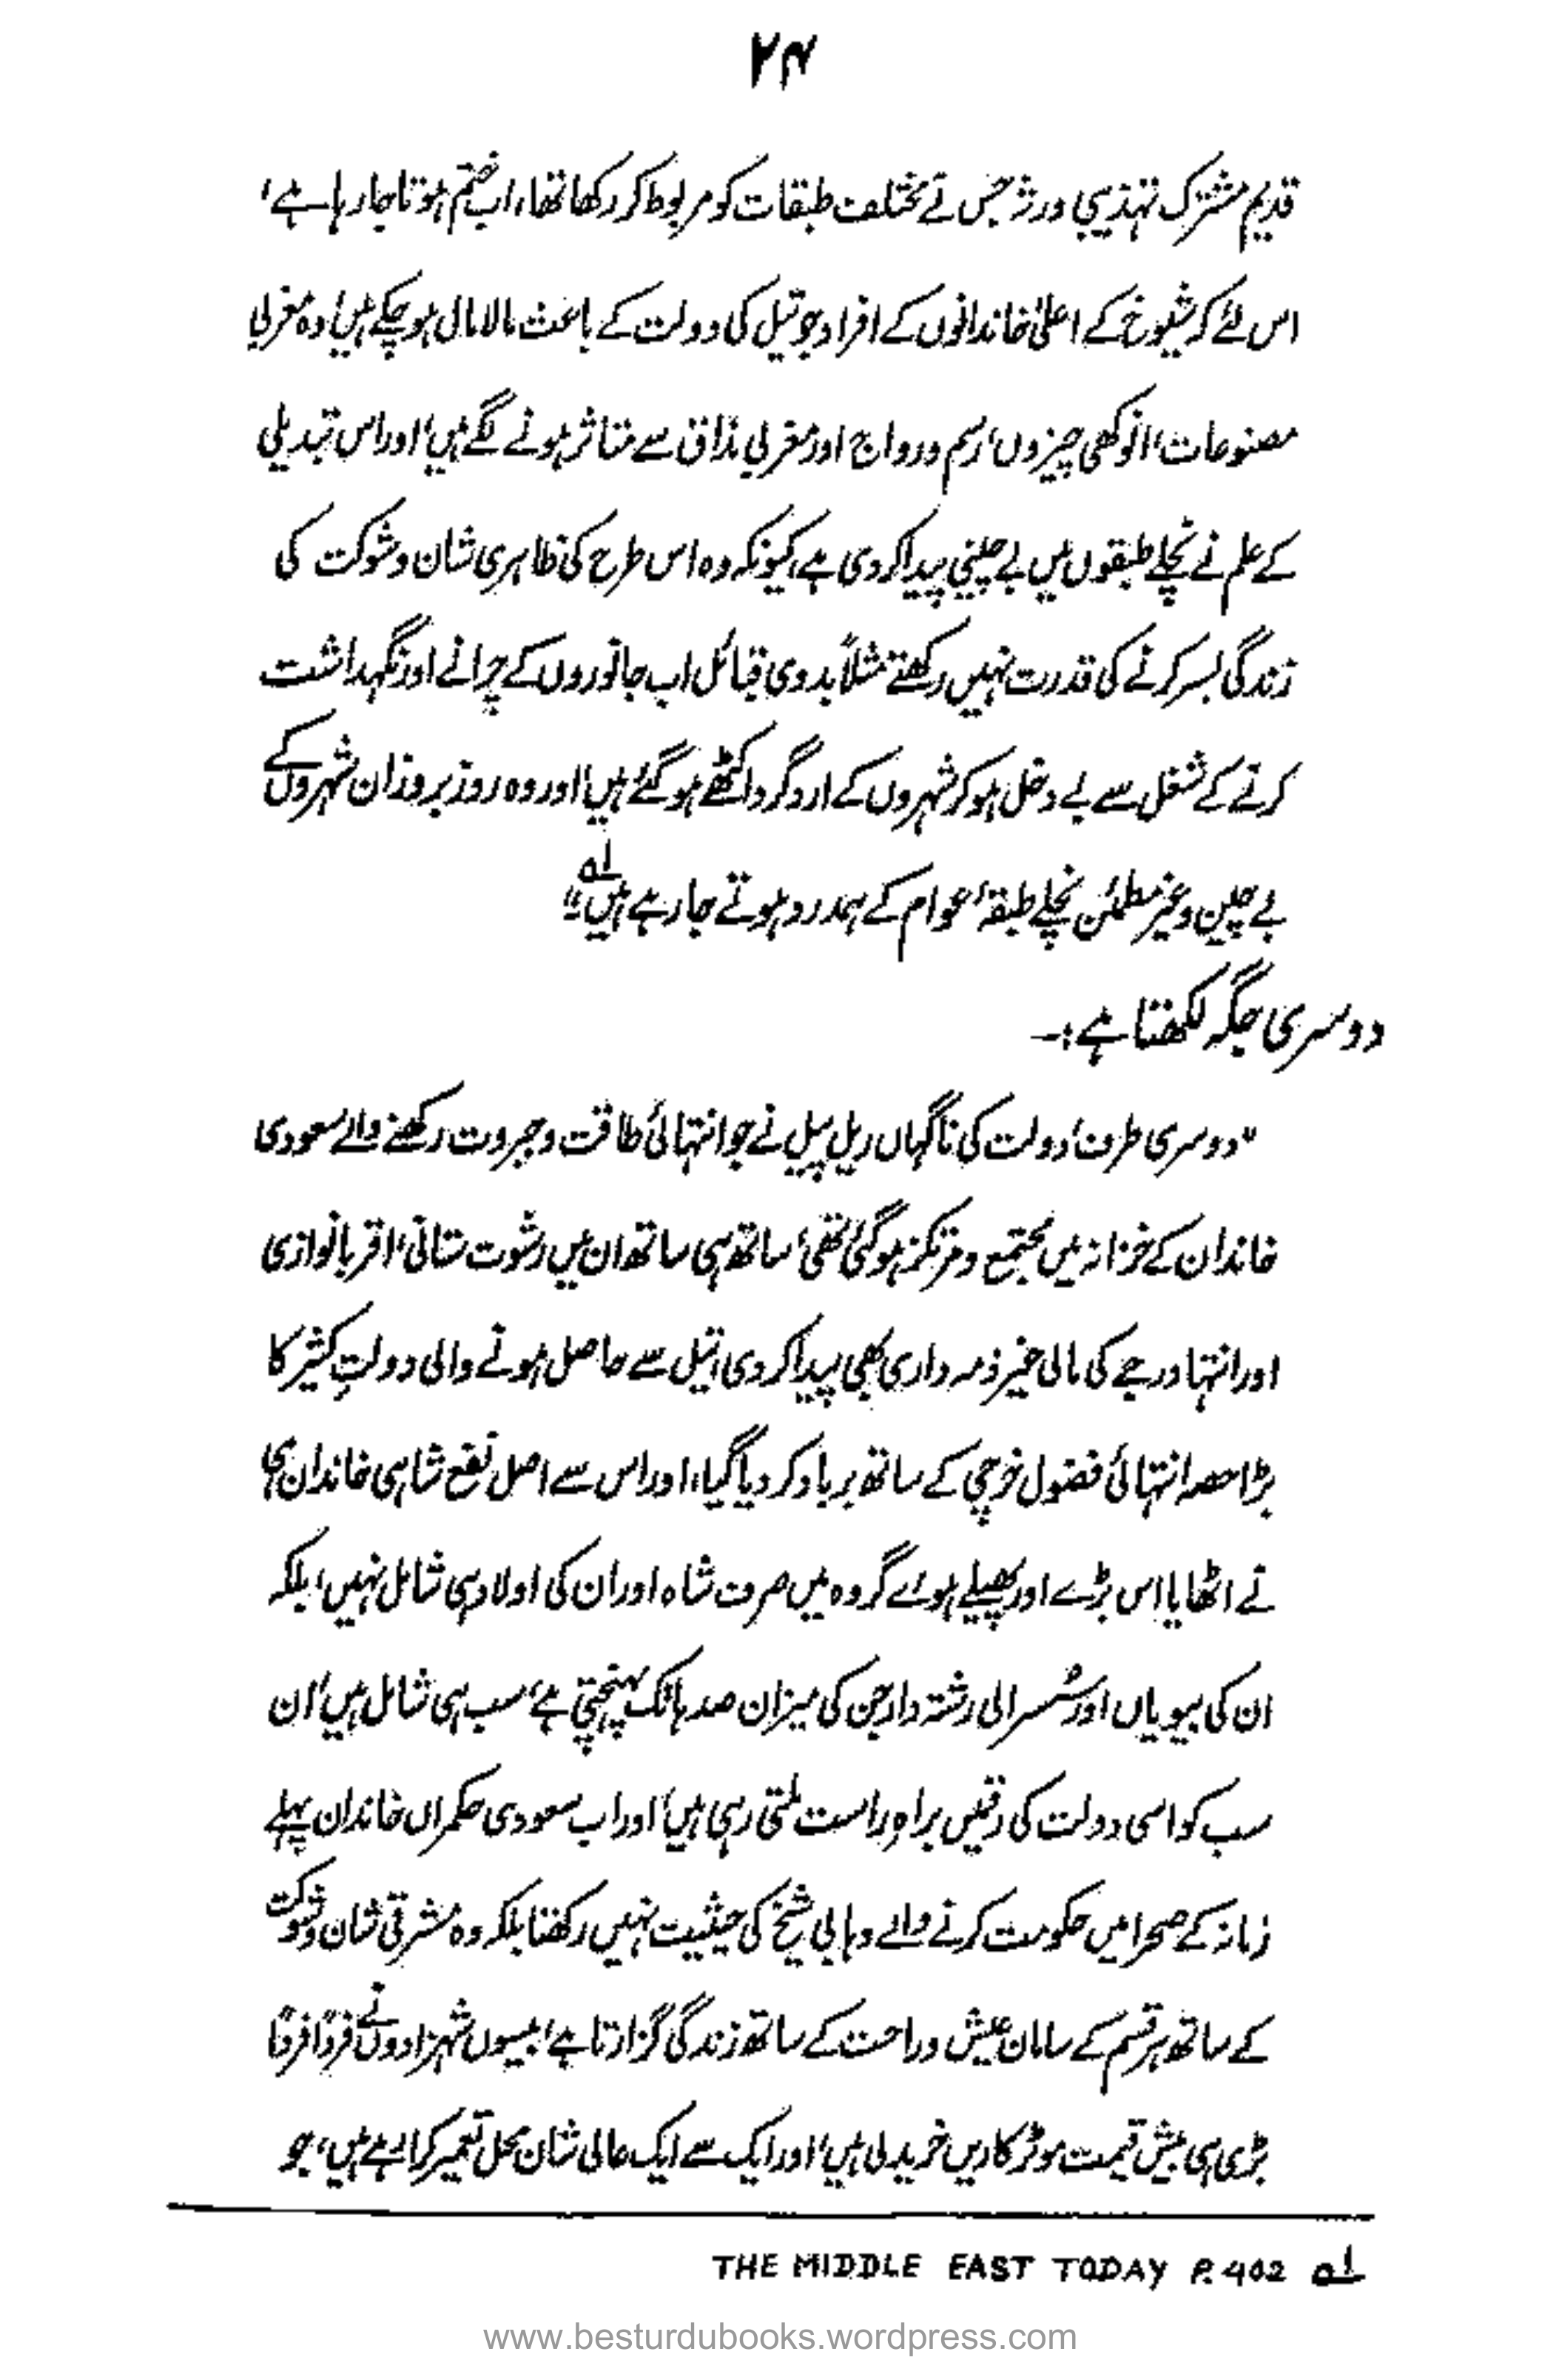 ۷۴
قدیم مشترک تہذیبی ورثہ جس نے مختلف طبقات کو مربوط کر رکھا تھا، اب ختم ہوتا جا رہا ہے،
اس لئے کہ شیوخ کے اعلیٰ خاندانوں کے افراد جو تیل کی دولت کے باعث مالا مال ہو چکے ہیں، وہ مغربی
مصنوعات، انوکھی چیزوں، رسم و رواج اور مغربی مذاق سے متاثر ہونے لگے ہیں، اور اس تبدیلی
کے علم نے نچلے طبقوں میں بے چینی پیدا کر دی ہے، کیونکہ وہ اس طرح کی ظاہری شان و شوکت کی
زندگی بسر کرنے کی قدرت نہیں رکھتے مثلاً بدوی قبائل اب جانوروں کے چرانے اور نگہداشت
کرنے کے شغل سے بے دخل ہو کر شہروں کے ارد گرد اکٹھے ہو گئے ہیں، اور وہ روز بروز ان شہروں کے
بے چین و غیر مطمئن نچلے طبقۂ عوام کے ہمدرد ہوتے جا رہے ہیں" لہ
دوسری جگہ لکھتا ہے:۔
"دوسری طرف، دولت کی ناگہاں ریل پیل نے جو انتہائی طاقت و جبروت رکھنے والے سعودی
خاندان کے خزانہ میں مجتمع و مرتکز ہو گئی تھی، ساتھ ہی ساتھ ان میں رشوت ستانی، اقربا نوازی
اور انتہا درجے کی مالی غیر ذمہ داری بھی پیدا کر دی، تیل سے حاصل ہونے والی دولتِ کثیر کا
بڑا حصہ انتہائی فضول خرچی کے ساتھ برباد کر دیا گیا، اور اس سے اصل نفع شاہی خاندان ہی
نے اٹھایا، اس بڑے اور پھیلے ہوئے گروہ میں صرف شاہ اور ان کی اولاد ہی شامل نہیں، بلکہ
ان کی بیویاں اور سُسرالی رشتہ دار جن کی میزان صدہا تک پہنچتی ہے، سب ہی شامل ہیں، ان
سب کو اسی دولت کی رقمیں براہِ راست ملتی رہی ہیں، اور اب سعودی حکمراں خاندان پہلے
زمانہ کے صحرا میں حکومت کرنے والے وہابی شیخ کی حیثیت نہیں رکھتا بلکہ وہ مشرقی شان و شوکت
کے ساتھ ہر قسم کے سامان عیش و راحت کے ساتھ زندگی گزارتا ہے، بیسیوں شہزادوں نے فرداً فرداً
بڑی ہی بیش قیمت موٹر کاریں خرید لی ہیں، اور ایک سے ایک عالی شان محل تعمیر کرا رہے ہیں، جو
لہ THE MIDDLE EAST TODAY P. 402
www.besturdubooks.wordpress.com